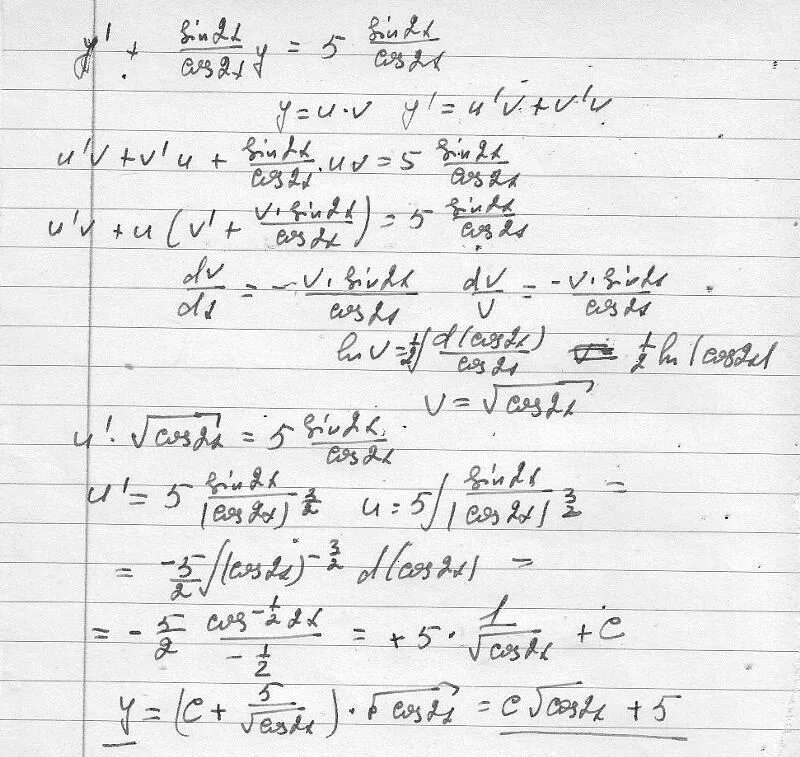 y' + sin2x/cos2x y = 5 sin2x/cos2x
y = u·v y' = u'v + v'v
u'v + v'u + sin2x/cos2x · uv = 5 sin2x/cos2x
u'v + u (v' + v·sin2x/cos2x) = 5 sin2x/cos2x
dv/dx = - v·sin2x/cos2x dv/v = -v·sin2x/cos2x
ln v = 1/2 ∫ d(cos2x)/cos2x 1/2 ln |cos2x|
v = √cos2x
u' · √cos2x = 5 sin2x/cos2x
u' = 5 sin2x/(cos2x)^-3/2 u = 5 ∫ sin2x/(cos2x)^3/2 =
= -5/2 ∫ (cos2x)^-3/2 d(cos2x) =
= - 5/2 cos^-1/2 2x / -1/2 = +5 · 1/√cos2x + c
y = (c + 5/√cos2x) · √cos2x = c√cos2x + 5